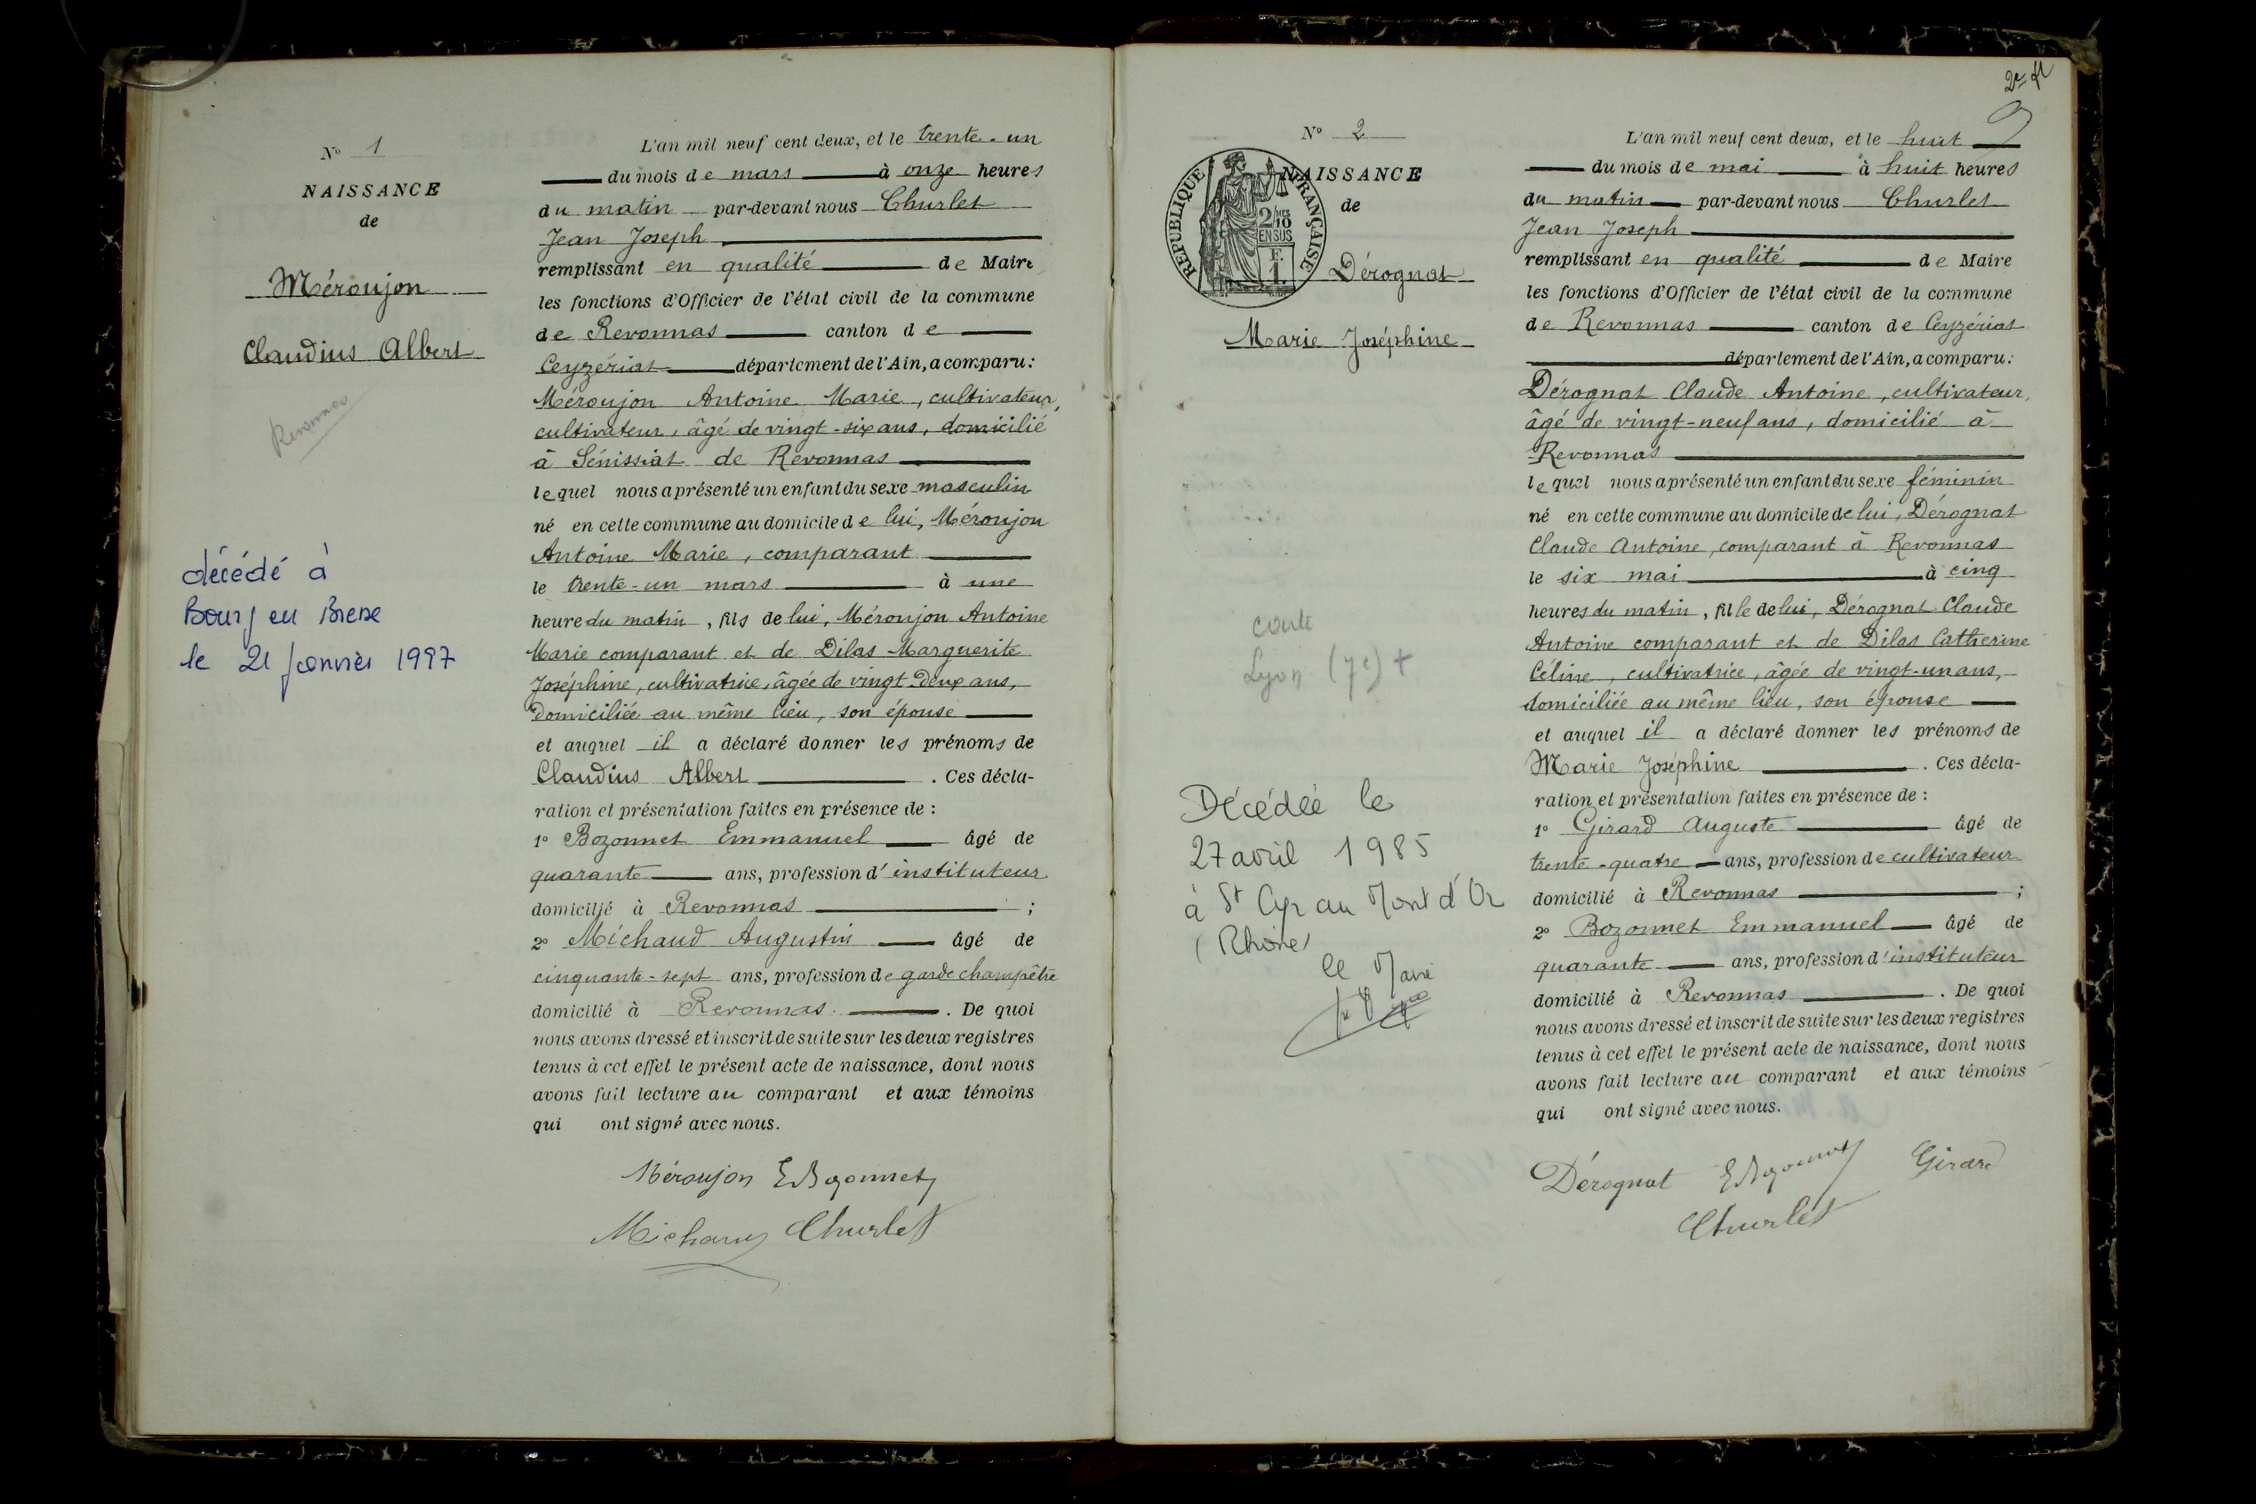 N° 1
NAISSANCE
de
Méroujon
Claudius Albert
Revonnas
décédé à
Bourg en Bresse
le 21 janvier 1997
L'an mil neuf cent deux, et le trente-un
du mois de mars à onze heures
du matin par-devant nous Churlet
Jean Joseph
remplissant en qualité de Maire
les fonctions d'Officier de l'état civil de la commune
de Revonnas canton de
Ceyzériat département de l'Ain, a comparu :
Méroujon Antoine Marie, cultivateur,
cultivateur, âgé de vingt-six ans, domicilié
à Sénissiat de Revonnas
lequel nous a présenté un enfant du sexe masculin
né en cette commune au domicile de lui, Méroujon
Antoine Marie, comparant
le trente-un mars à une
heure du matin, fils de lui, Méroujon Antoine
Marie comparant et de Dilas Marguerite
Joséphine, cultivatrice, âgée de vingt-deux ans,
domiciliée au même lieu, son épouse
et auquel il a déclaré donner les prénoms de
Claudius Albert. Ces décla-
ration et présentation faites en présence de :
1° Bozonnet Emmanuel âgé de
quarante ans, profession d'instituteur
domicilié à Revonnas ;
2° Michaud Augustin âgé de
cinquante-sept ans, profession de garde champêtre
domicilié à Revonnas. De quoi
nous avons dressé et inscrit de suite sur les deux registres
tenus à cet effet le présent acte de naissance, dont nous
avons fait lecture au comparant et aux témoins
qui ont signé avec nous.
Méroujon EBozonnet
Michaud Churlet
N° 2
NAISSANCE
de
RÉPUBLIQUE FRANÇAISE
2/10 EN SUS
F. 1
Dérognat
Marie Joséphine
Lyon (7e) +
Décédée le
27 avril 1985
à St Cyr au Mont d'Or
(Rhône)
le Maire
L'an mil neuf cent deux, et le huit
du mois de mai à huit heures
du matin par-devant nous Churlet
Jean Joseph
remplissant en qualité de Maire
les fonctions d'Officier de l'état civil de la commune
de Revonnas canton de Ceyzériat
département de l'Ain, a comparu :
Dérognat Claude Antoine, cultivateur,
âgé de vingt-neuf ans, domicilié à
Revonnas
lequel nous a présenté un enfant du sexe féminin
né en cette commune au domicile de lui, Dérognat
Claude Antoine, comparant à Revonnas
le six mai à cinq
heures du matin, fille de lui, Dérognat Claude
Antoine comparant et de Dilas Catherine
Céline, cultivatrice, âgée de vingt-un ans,
domiciliée au même lieu, son épouse
et auquel il a déclaré donner les prénoms de
Marie Joséphine. Ces décla-
ration et présentation faites en présence de :
1° Girard Auguste âgé de
trente-quatre ans, profession de cultivateur
domicilié à Revonnas ;
2° Bozonnet Emmanuel âgé de
quarante ans, profession d'instituteur
domicilié à Revonnas. De quoi
nous avons dressé et inscrit de suite sur les deux registres
tenus à cet effet le présent acte de naissance, dont nous
avons fait lecture au comparant et aux témoins
qui ont signé avec nous.
Dérognat EBozonnet Girard
Churlet